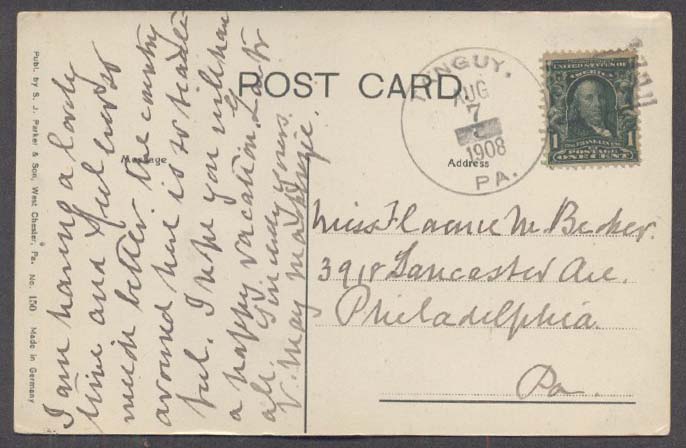 POST CARD
Message
Address
I am having a lovely
time and feel ever so
much better. The country
around here is so beauti-
ful. I hope you will have
a happy vacation.
Sincerely yours,
V. May
Miss Florence M. Becker.
3918 Lancaster Ave.
Philadelphia
Pa.
NGUY,
AUG
7
1908
PA.
UNITED STATES OF AMERICA
FRANKLIN
POSTAGE
1 ONE CENT 1
Publ. by S. J. Parker & Son, West Chester, Pa. No. 150 Made in Germany